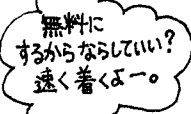 無料に
するからならしていい?
速く着くよー。